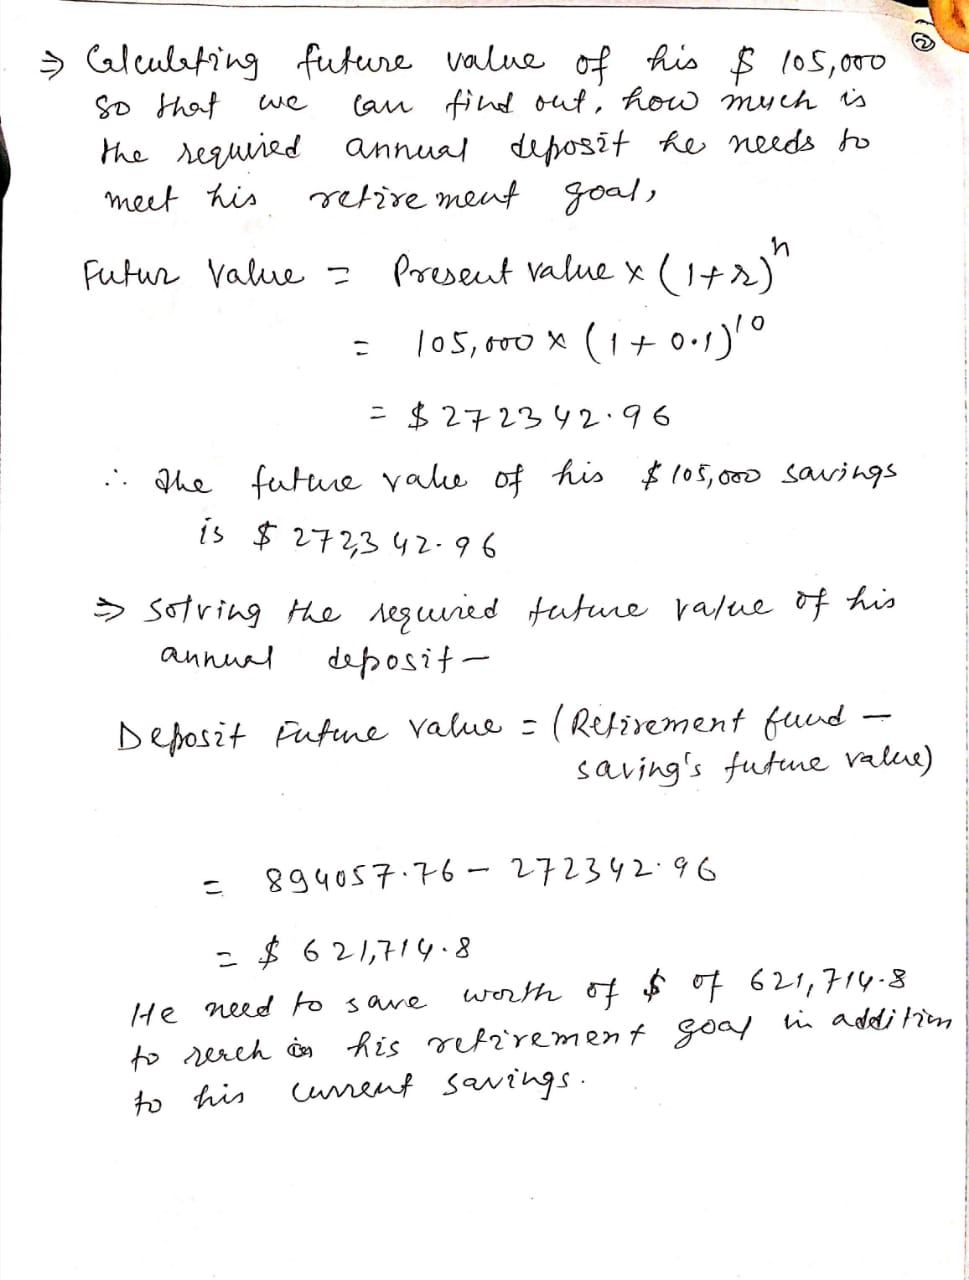 ②
⇒ Calculating future value of his $ 105,000
so that we can find out, how much is
the required annual deposit he needs to
meet his retirement goal,
Futur Value = Present value x (1+r)^n
= 105,000 x (1+0.1)^10
= $272342.96
∴ The future value of his $105,000 savings
is $ 272,342.96
⇒ Solving the required future value of his
annual deposit -
Deposit Future Value = (Retirement fund -
saving's future value)
= 894057.76 - 272342.96
= $ 621,714.8
He need to save worth of $ of 621,714.8
to rerch his retirement goal in addition
to his current savings.